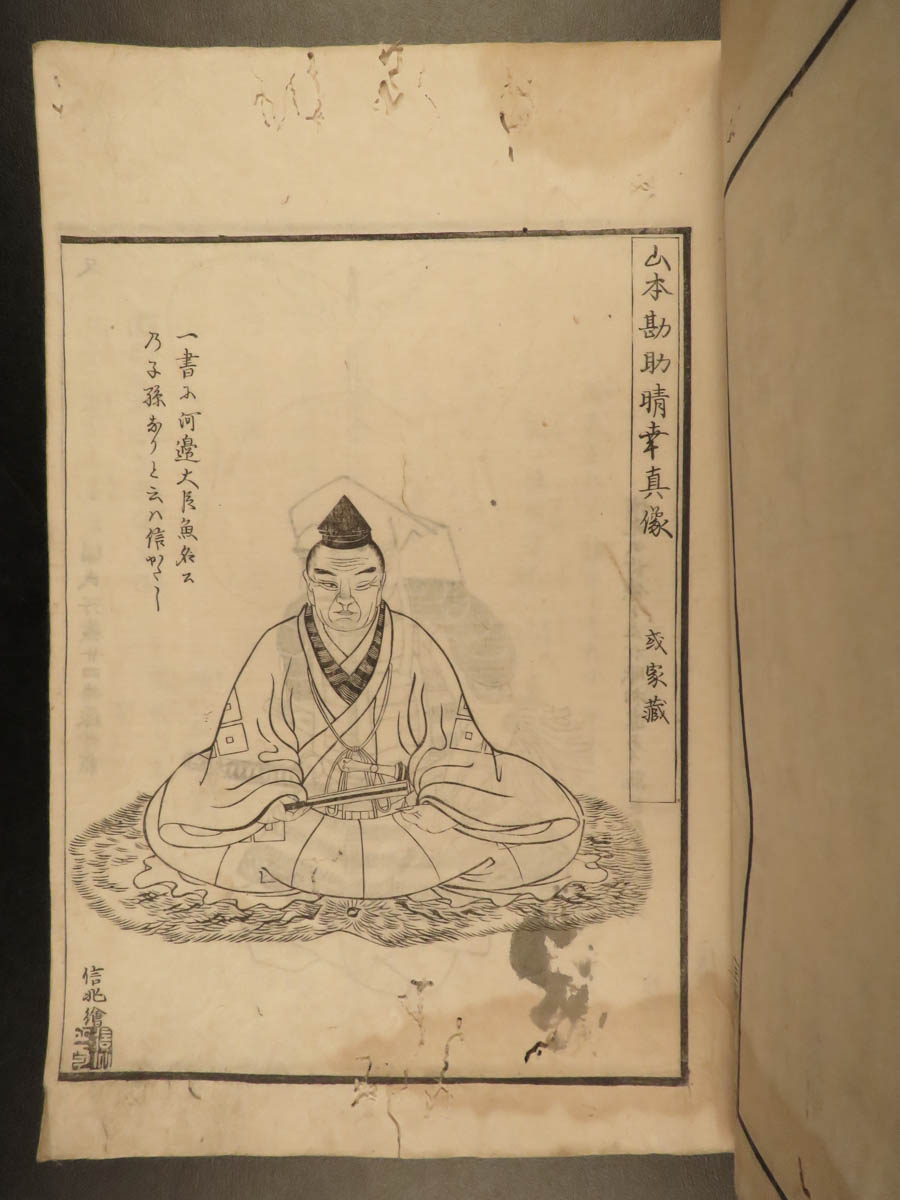 山本勘助晴幸真像 或家藏
一書に河邊大臣魚名公
乃子孫なりと云ハ信かたし
信兆繪